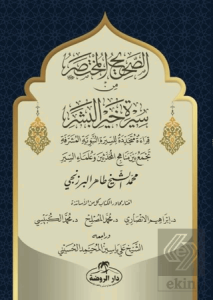 الصحيح المختصر
من
سيرة خير البشر
قراءة جديدة للسيرة النبوية المشرفة
تجمع بين مناهج المحدثين وعلماء السير
محمد الشيخ طاهر البرزنجي
د. إبراهيم الأنصاري د. محمد المصلح د. محمد الكبيسي
الشيخ علي ياسين المحيميد الحسيني
دار الروضة
ekin